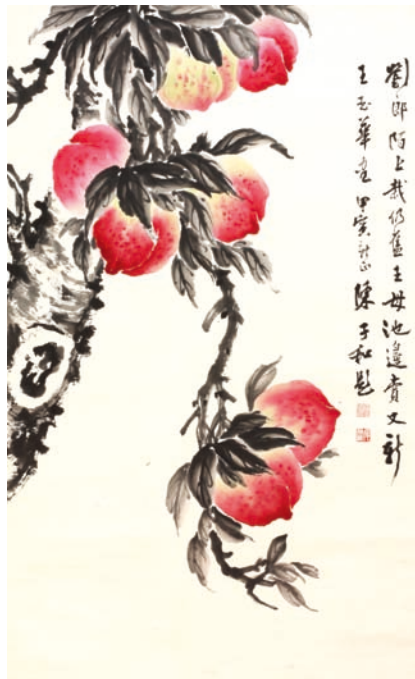 劉郎陌上栽仍舊王母池邊賞又新
王玉華畫 甲寅新正 陳子和題